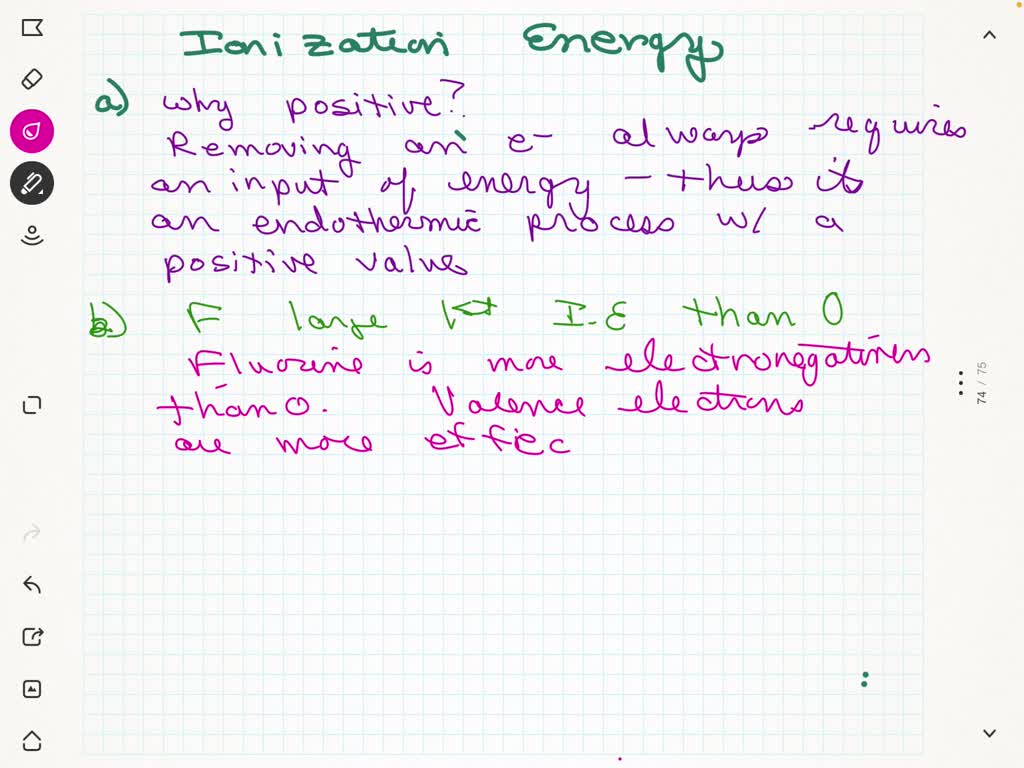 Ionization Energy
a) why positive?
Removing an e- always requires
an input of energy - thus its
an endothermic process w/ a
positive values
b.) F large 1st I.E than O
Fluorine is more electronegativness
than O. Valence electrons
are more effiec
74 / 75